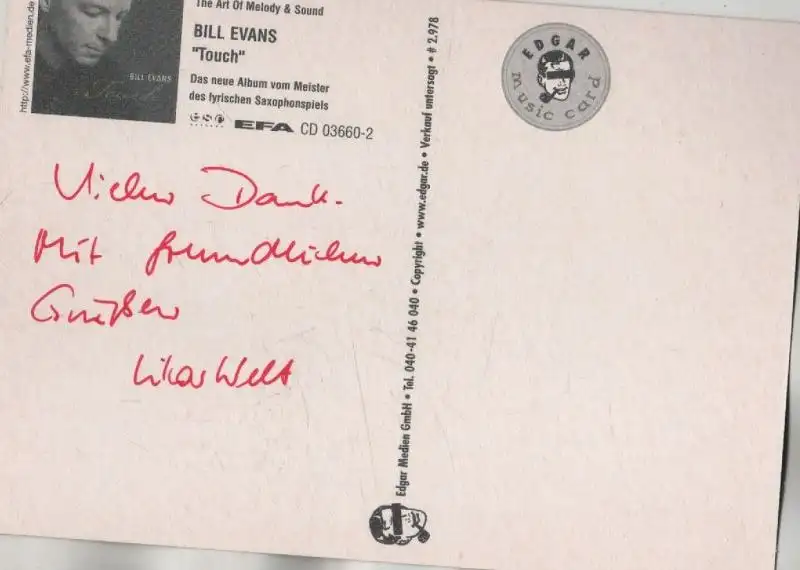 The Art Of Melody & Sound
BILL EVANS
"Touch"
Das neue Album vom Meister
des lyrischen Saxophonspiels
EFA CD 03660-2
http://www.efa-medien.de
BILL EVANS
Touch
Vielen Dank.
Mit freundlichen
Grüßen
Edgar Medien GmbH • Tel. 040-41 46 040 • Copyright • www.edgar.de • Verkauf untersagt • # 2.978
EDGAR
music card